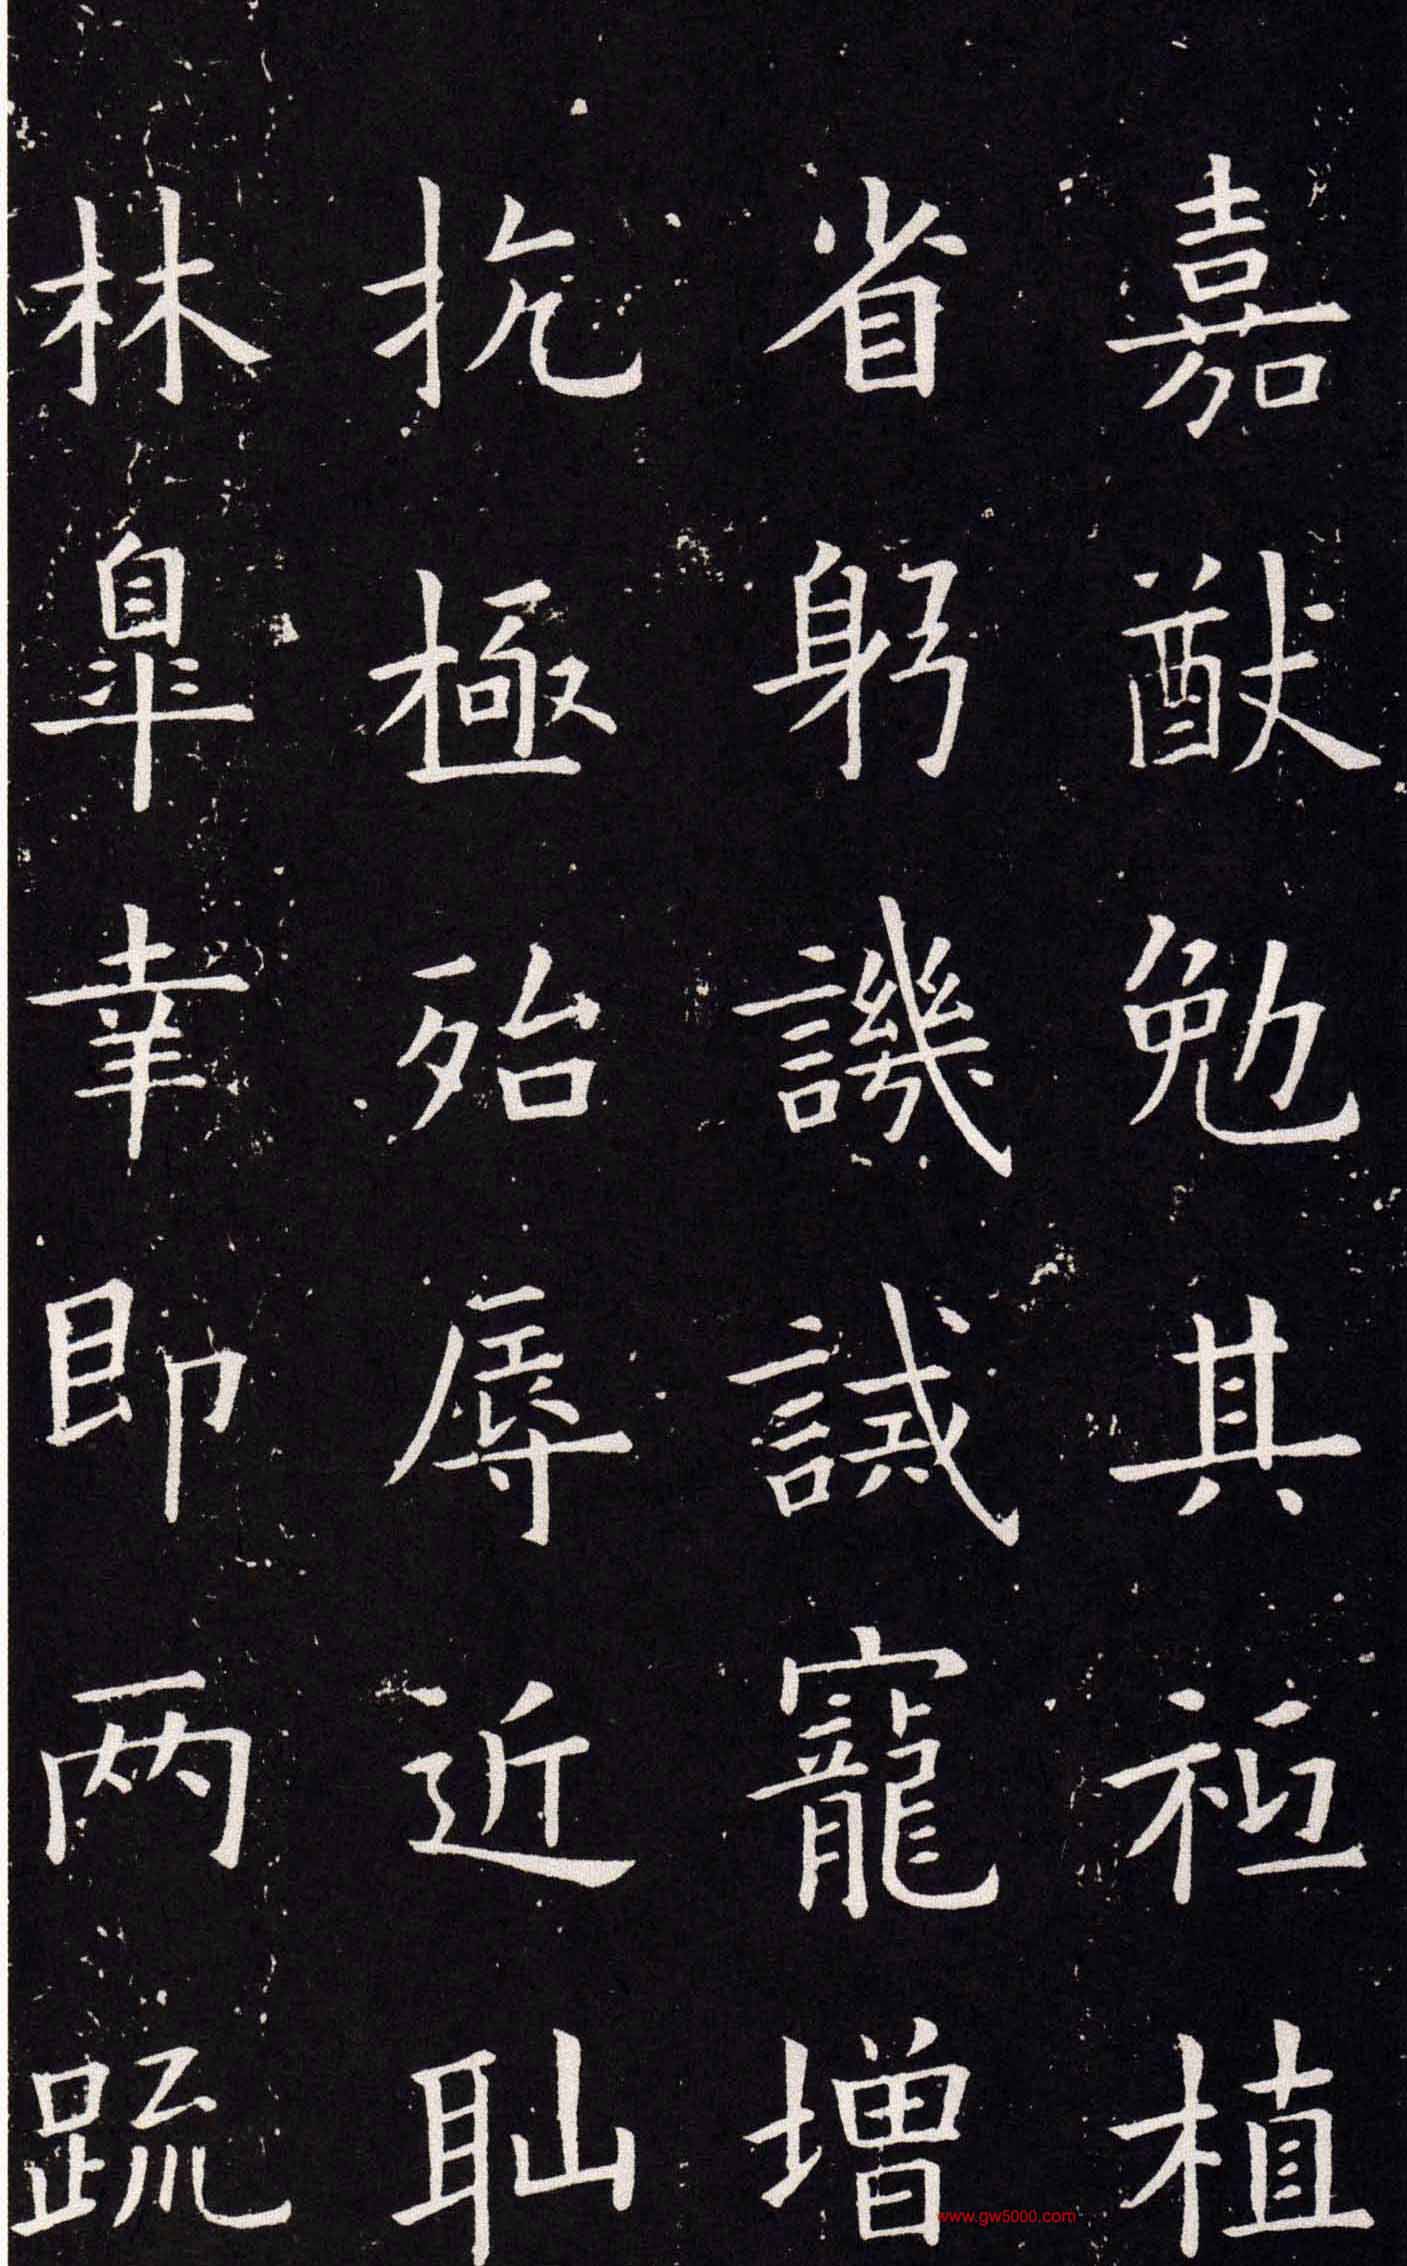 嘉猷勉其祗植
省躬譏誡寵増
抗極殆辱近耻
林皐幸即两疏
www.gw5000.com